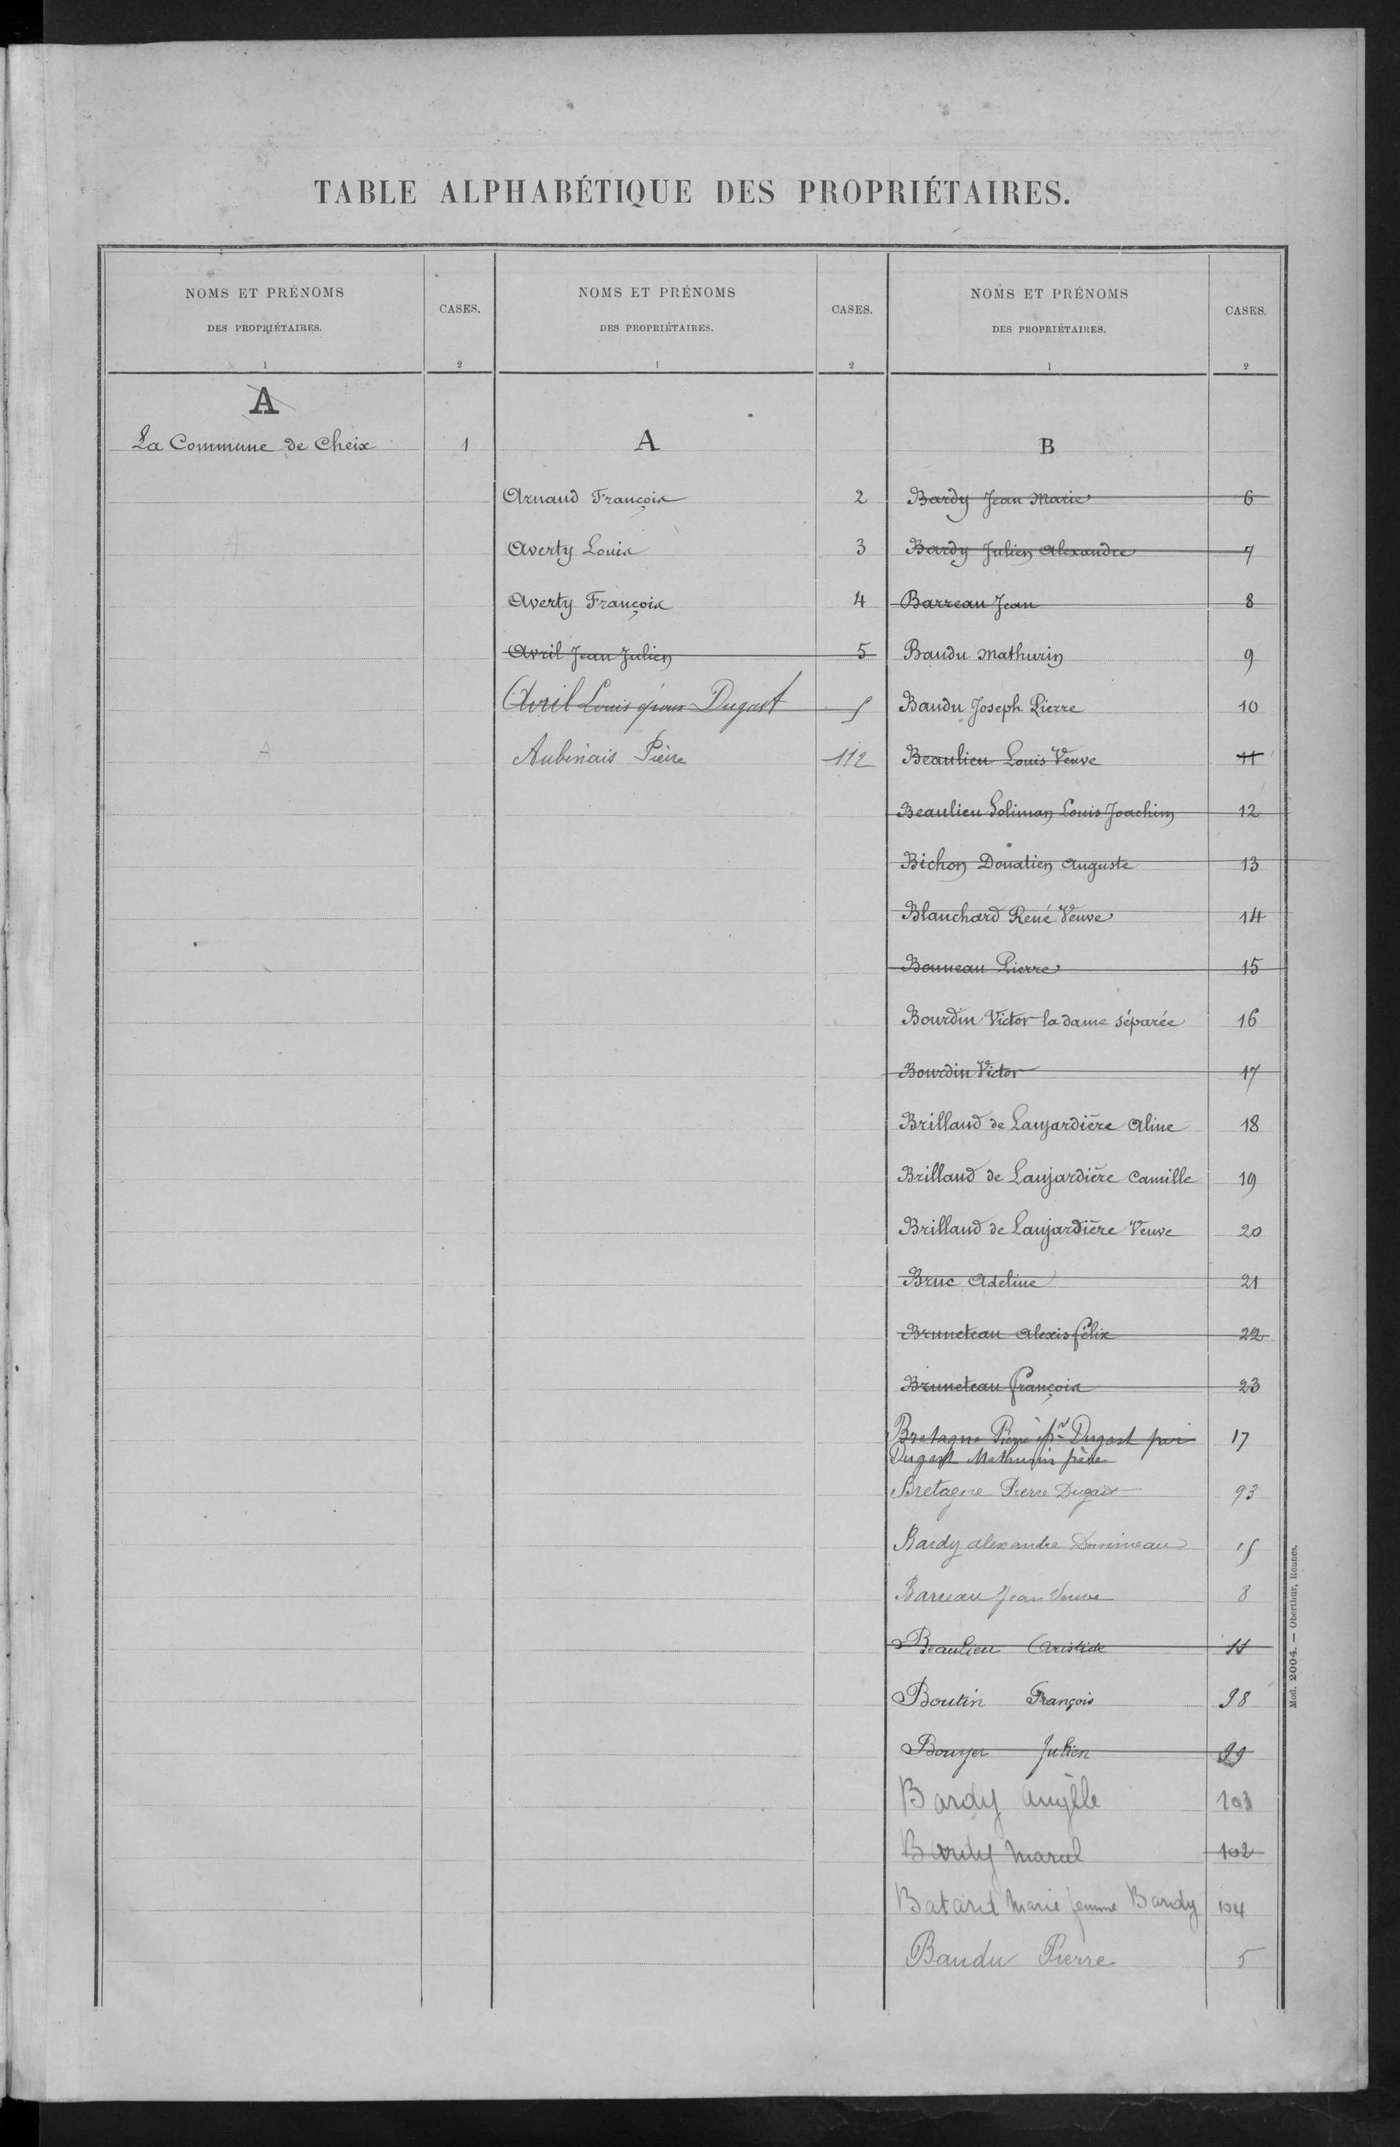 TABLE ALPHABÉTIQUE DES PROPRIÉTAIRES.
NOMS ET PRÉNOMS
DES PROPRIÉTAIRES.
1
CASES.
2
A
La Commune de Cheix 1
NOMS ET PRÉNOMS
DES PROPRIÉTAIRES.
1
CASES.
2
A
Arnaud François 2
Averty Louis 3
Averty François 4
Avril Jean Julien 5
Avril Louis époux Dugast 5
Aubinais Pierre 112
NOMS ET PRÉNOMS
DES PROPRIÉTAIRES.
1
CASES.
2
B
Bardy Jean Marie 6
Bardy Julien Alexandre 7
Barreau Jean 8
Baudu Mathurin 9
Baudu Joseph Pierre 10
Beaulieu Louis Veuve 11
Beaulieu Soliman Louis Joachim 12
Bichon Donatien Auguste 13
Blanchard René Veuve 14
Bonneau Pierre 15
Bourdin Victor la dame séparée 16
Bourdin Victor 17
Brillaud de Laujardière Aline 18
Brillaud de Laujardière Camille 19
Brillaud de Laujardière Veuve 20
Bruc Adeline 21
Bruneteau Alexis Félix 22
Bruneteau François 23
Bretagne Pierre Dugast par 17
Dugast Mathurin
Bretagne Pierre Dugast 93
Bardy Alexandre 15
Barreau Jean Veuve 8
Beaulieu Aristide 11
Boutin François 98
Bouyer Julien 99
Bardy 103
Bardy Marcel 102
Batard Marie femme Bardy 104
Baudu Pierre 5
Mod. 2004. — Oberthur, Rennes.